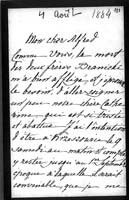 4 Août 1884
Mon cher Alfred
Comme vous, la mort
de deux frères Branicki
m'a bien affligé, et j'éprouve
le besoin d'aller soigner
un peu notre chère Cath
qui est si triste
et abattue. J'ai l'intention
d'être à
samedi au matin &
y rester jusqu'au 12 Septembre
époque à laquelle il serait
convenable que je me